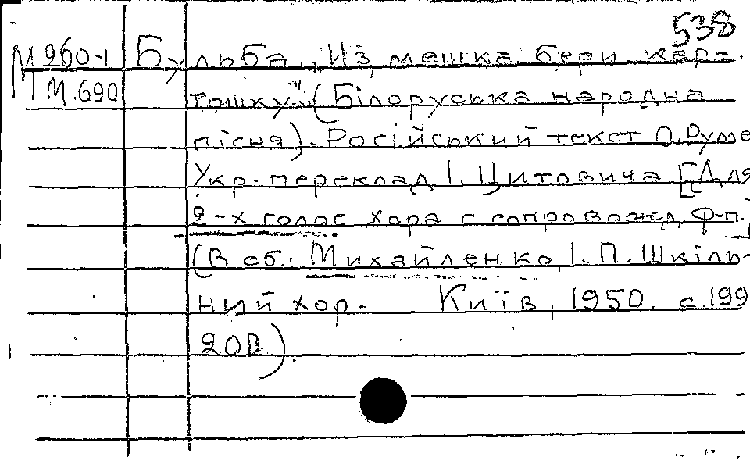 538
М 260-1 Бульба. „Из мешка бери кар-
М. 690 тошку" (Білоруська народна
пісня). Російський текст О. Руме
Укр. переклад І. Цитовича [Для
2-х голос хора с сопровожд. ф-п.]
(В сб.: Михайленко І. П. Шкіль-
ний хор. Київ, 1950. с. 199
200).